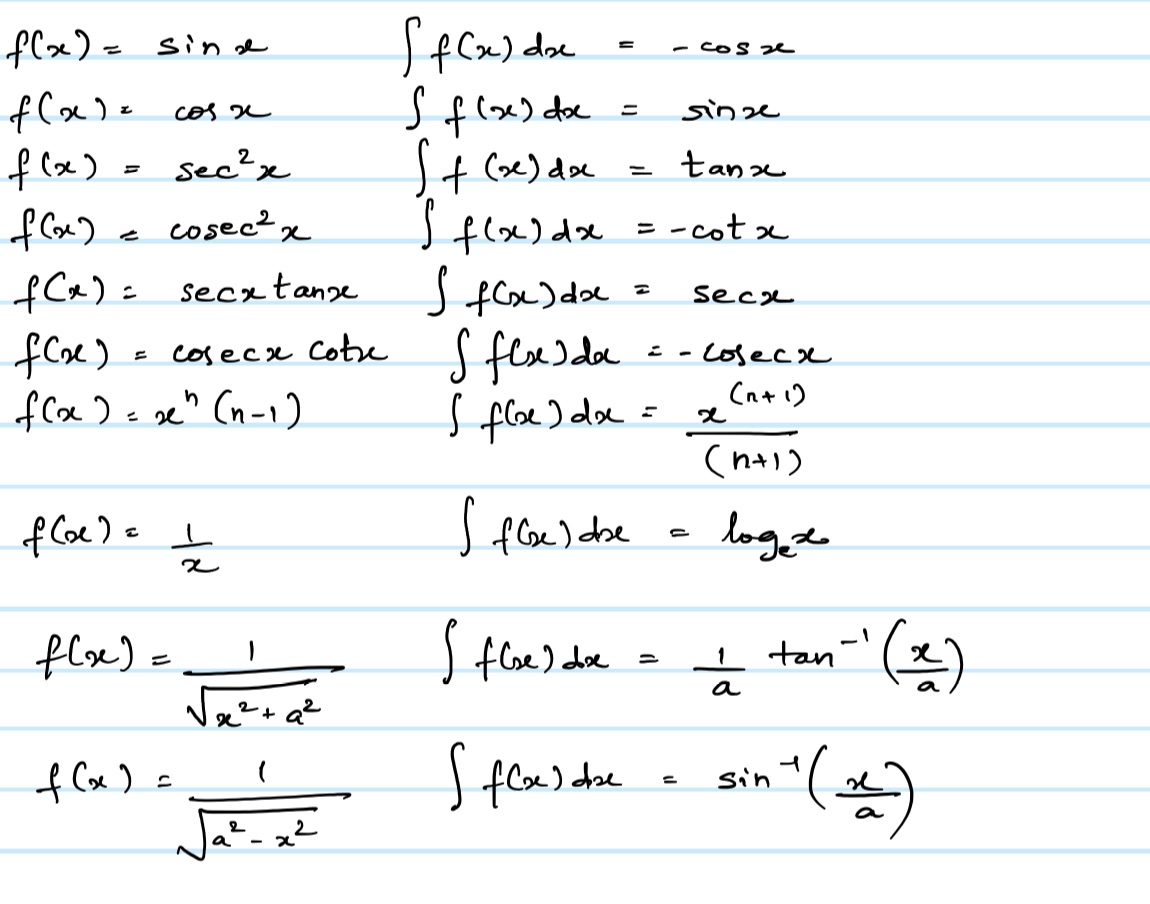 f(x) = sin x ∫ f(x) dx = - cos x
f(x) = cos x ∫ f(x) dx = sin x
f(x) = sec²x ∫ f(x) dx = tan x
f(x) = cosec²x ∫ f(x) dx = -cot x
f(x) = secx tanx ∫ f(x) dx = secx
f(x) = cosecx cotx ∫ f(x) dx = - cosecx
f(x) = xⁿ (n-1) ∫ f(x) dx = x^(n+1) / (n+1)
f(x) = 1/x ∫ f(x) dx = logₑx
f(x) = 1/√(x² + a²) ∫ f(x) dx = 1/a tan⁻¹(x/a)
f(x) = 1/√(a² - x²) ∫ f(x) dx = sin⁻¹(x/a)